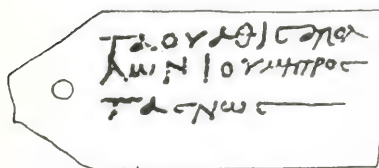 ΤΑΟΥΑΘΙϹ ΑΠΟΛ
ΑΜΙΝΙΟΥ ΜΗΤΡΟϹ
ΤΑϹΝΩϹ